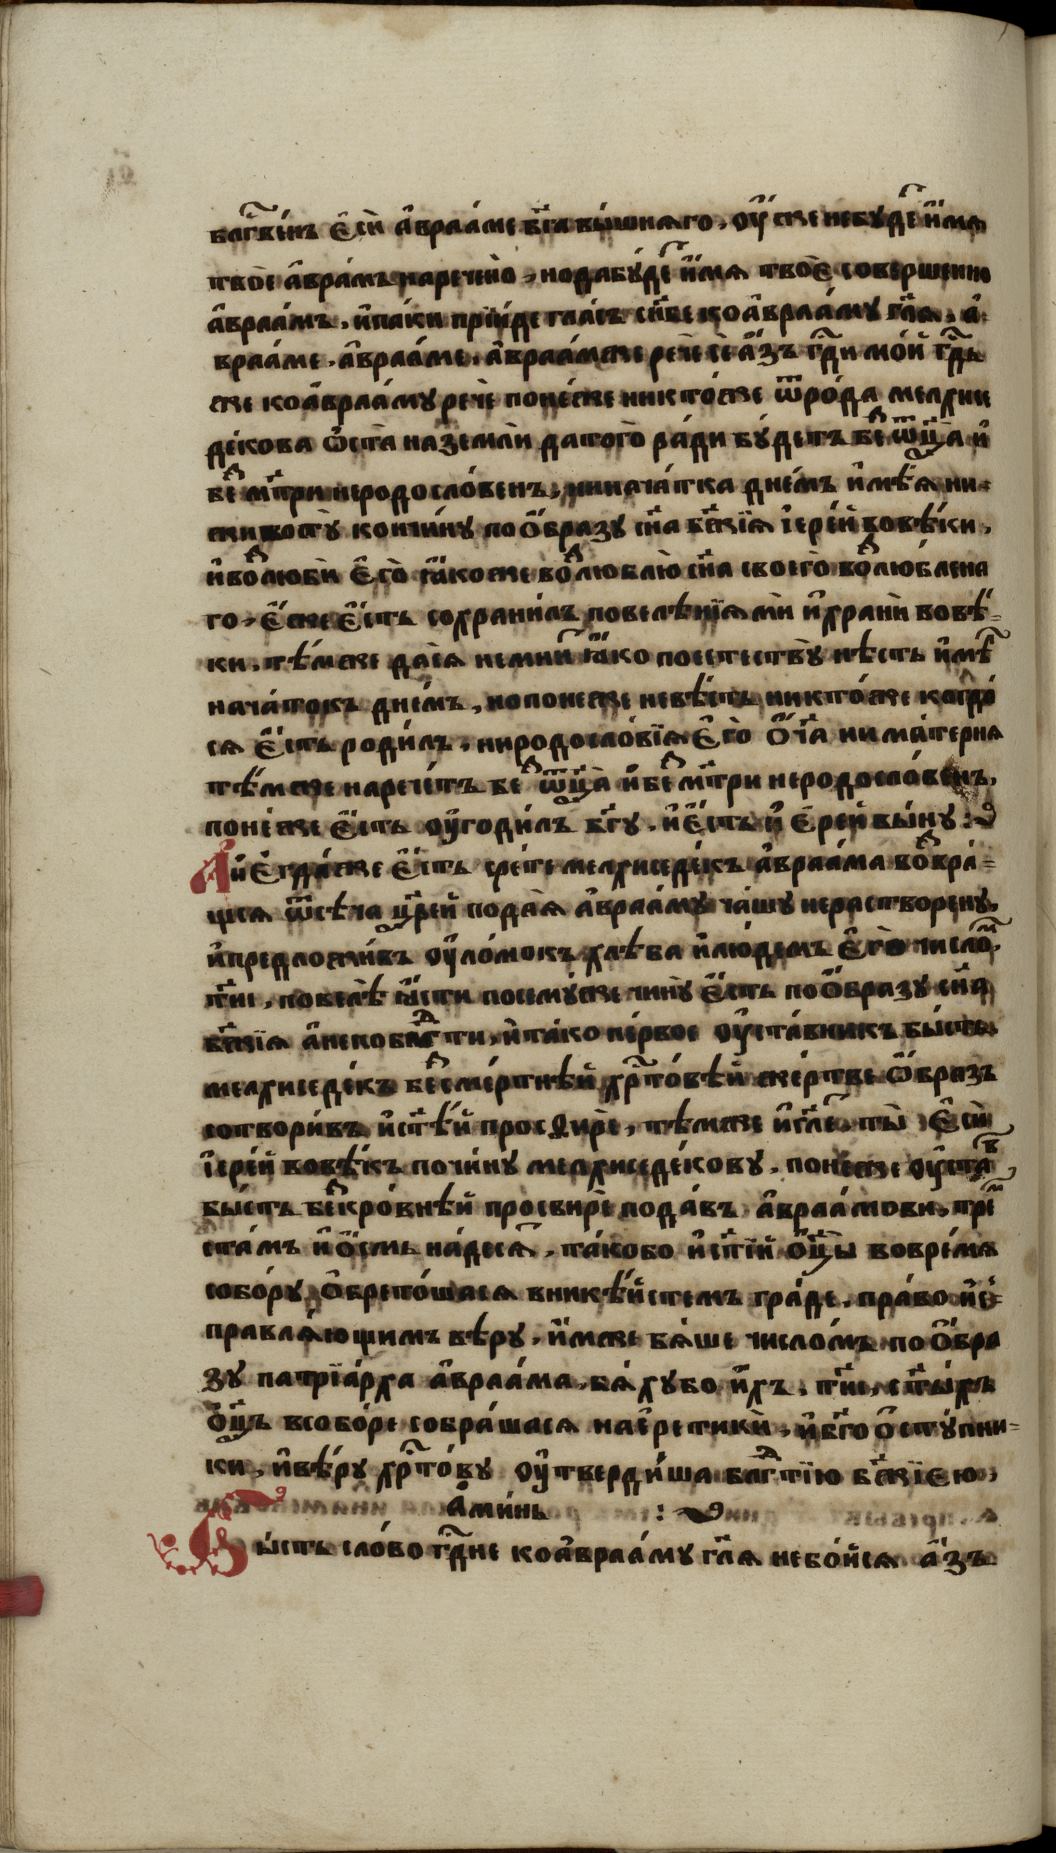 благⷭ҇ве́нъ є҆сѝ а҆враа́ме бг҃а вы́шнѧго, ᲂу҆́же небꙋ́деⷮ и҆́мѧ
твоѐ а҆вра́мъ нарече́но, нода бꙋ́деⷮ и҆́мѧ твоѐ соверше́нно
а҆враа́мъ. и҆па́ки прїи́де гла́съ сн҃бе коа҆враа́мꙋ гл҃ѧ, а҆
враа́ме, а҆враа́ме, а҆враа́мже речѐ сѐ а҆́зъ гдⷭ҇и мо́й гдⷭ҇ь
же коа҆враа́мꙋ речѐ поне́же никто́же ѿро́да мелхисе
де́кова ѡ҆ста̀ наземлѝ датого̀ ра́ди бꙋ́детъ беⷥ ѿц҃а и҆
беⷥ мт҃ри неродосло́венъ, нинача́тка дне́мъ и҆мѣ́ѧ ни
животꙋ̀ кончи́нꙋ поѻ҆́бразꙋ сн҃а бж҃їѧ і҆ере́й вовѣ́ки,
и҆воⷥлюбѝ є҆го̀ ꙗ҆́коже воⷥлюблю̀ сн҃а своего̀ воⷥлю́блена
го, є҆́же є҆́сть сохрани́лъ повелѣ́нїѧмѝ и҆хранѝ вовѣ́
ки, тѣ́мже да́сѧ немниⷮ ꙗ҆́ко поестествꙋ̀ нѣ́сть и҆мѣ́ⷧ
нача́токъ дне́мъ, нопоне́же невѣ́сть никто́же когдо́
сѧ є҆́сть роди́лъ, ниродосло́вїѧ є҆го̀ ѻ҆́ч҃а нима́тернѧ
тѣ́мже нарече́тъ беⷥ ѿц҃а̀ и҆ беⷥ мт҃ри неродосло́венъ,
поне́же є҆́сть ᲂу҆годи́лъ бг҃ꙋ. и҆є҆́сть и҆ є҆ре́й вы́нꙋ
А и҆ є҆гда́же є҆́сть срѣ́те мелхиседе́къ а҆враа́ма воⷥвра́
щсѧ ѿсѣ́ча цр҃е́й пода́ѧ а҆враа́мꙋ ча́шꙋ нерастворе́нꙋ,
и҆предложи́въ ᲂу҆ло́мокъ хлѣ́ба и҆лю́демъ є҆го̀ число́ⷨ
тн҃и, повелѣ̀ ꙗ҆́сти посемꙋ́же чи́нꙋ є҆́сть поѻ҆́бразꙋ сн҃а
бж҃їѧ а҆некоблгⷣти, и҆та́ко пе́рвое ᲂу҆ста́вникъ бы́сть
мелхиседе́къ беⷥсме́ртнѣй хрⷭ҇то́вѣй же́ртве ѻ҆́бразъ
сотвори́въ и҆ст҃ѣ́й просѳирѐ, тѣ́мже и҆гл҃еⷮ ты̀ є҆сѝ
і҆ере́й вовѣ́къ почи́нꙋ мелхиседе́ковꙋ. поне́же ᲂу҆ста́ⷡ
бы́сть беⷥкро́внѣй просвирѐ пода́въ а҆враа́мови, треⷨ
ста́мъ и҆ ѻ҆́смь на́десѧⷮ, та́кобо и҆ст҃і́й ѻ҆ц҃ы̀ вовре́мѧ
собо́рꙋ ѻ҆брето́шасѧ вникѣ́йстемъ гра́де, пра́во и҆с
правлѧ́ющимъ вѣ́рꙋ, и҆́мже бѧ́ше число́мъ поѻ҆́бра
зꙋ патрїа́рха а҆враа́ма, бѧ́хꙋбо и҆́хъ, тн҃и, ст҃ы́хъ
ѻ҆ц҃ъ всобо́ре собра́шасѧ нає҆ретикѝ, и҆бг҃о ѻ҆стꙋ́пни
ки, и҆вѣ́рꙋ хрⷭ҇то́вꙋ ᲂу҆твердѝша блгⷣтїю бж҃їєю,
а҆ми́нь
Бы́сть сло́во гдⷭ҇не коа҆враа́мꙋ гл҃ѧ небо́йсѧ а҆́зъ